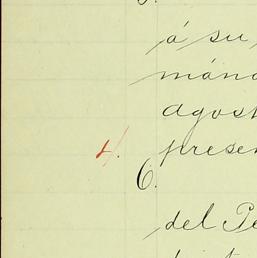 á su
mána
agost
4. presen
6.
del Pe